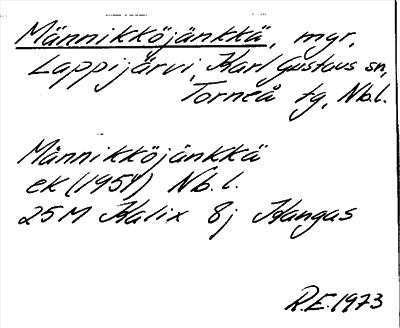 Männikköjänkkä, mgr,
Lappijärvi, Karl Gustavs sn,
Torneå tg, Nb.l.
Männikköjänkkä
ek (1951) Nb.l.
25M Kalix 8j Kangas
R.E. 1973